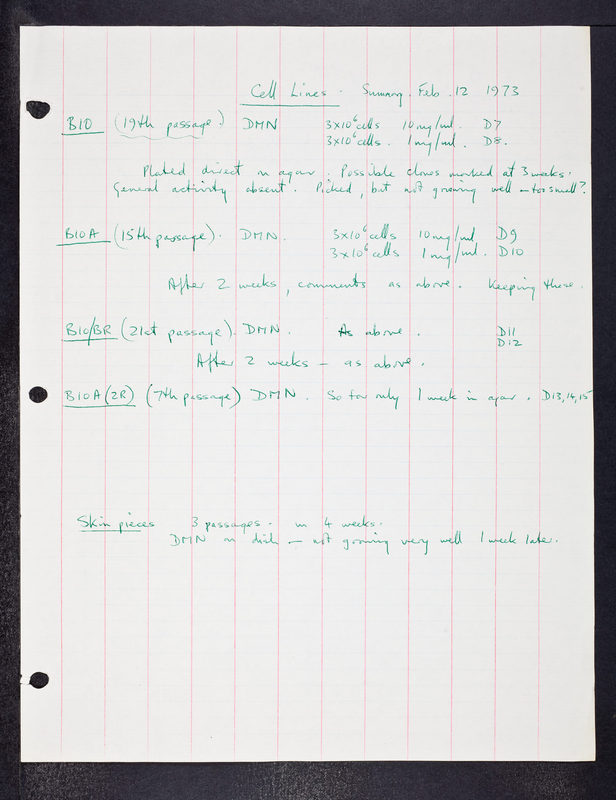 Cell Lines. Summary. Feb. 12 1973
B10 (19th passage) DMN 3x10⁶ cells 10 mg/ml. D7
3x10⁶ cells. 1 mg/ml. D8.
Plated direct in agar. Possible clones marked at 3 weeks.
General activity absent. Picked, but not growing well – too small?
B10A (15th passage). DMN. 3x10⁶ cells 10 mg/ml D9
3x10⁶ cells 1 mg/ml. D10
After 2 weeks, comments as above. Keeping these.
B10/BR (21st passage). DMN. As above. D11
D12
After 2 weeks – as above.
B10A(2R) (7th passage) DMN. So far only 1 week in agar. D13,14,15
Skin pieces 3 passages. in 4 weeks.
DMN on dish – not growing very well 1 week later.